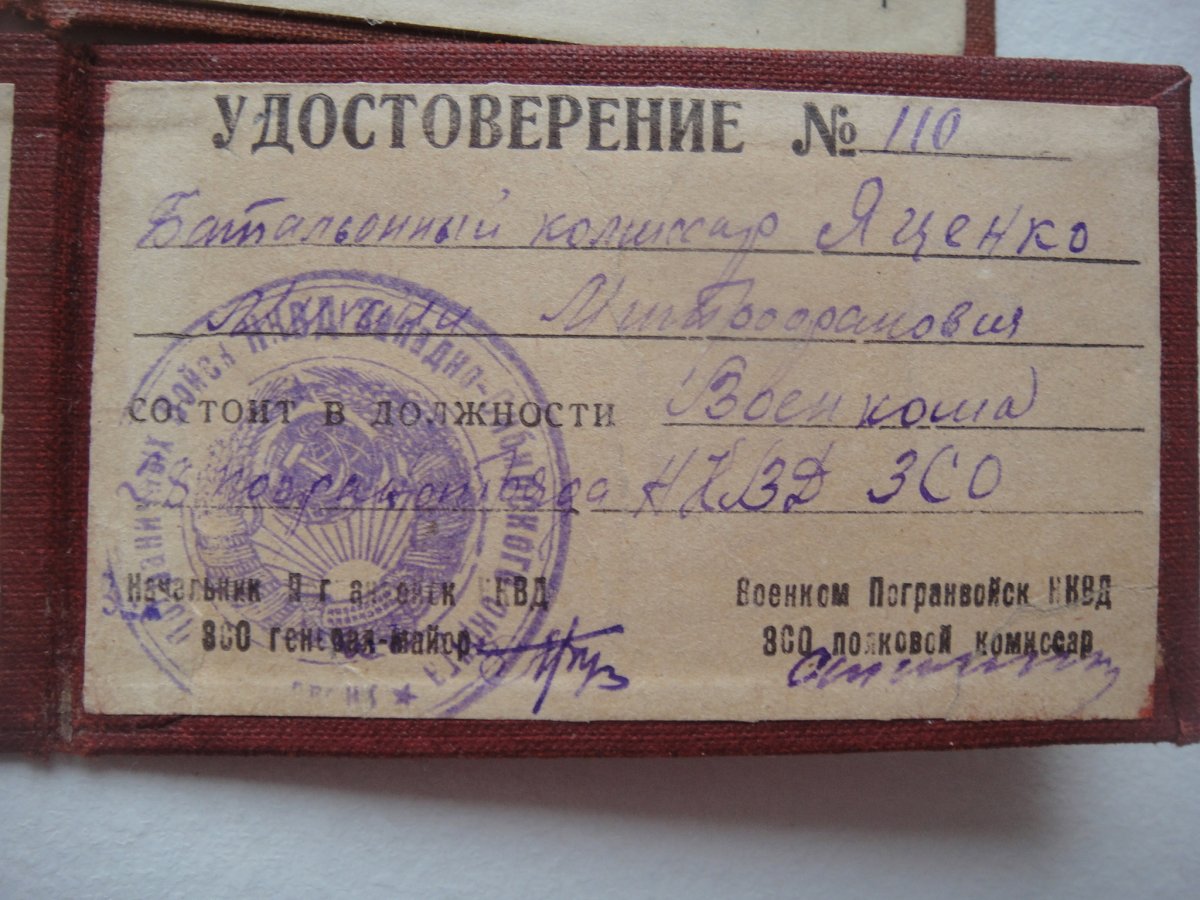 УДОСТОВЕРЕНИЕ № 110
Батальонный комиссар Яценко
Митрофанович
состоит в должности Военкома
погранотряда НКВД ЗСО
Начальник Погранвойск НКВД
ЗСО генерал-майор
Военком Погранвойск НКВД
ЗСО полковой комиссар
ПОГРАНИЧНЫХ ВОЙСК НКВД ЗАПАДНО-СИБИРСКОГО ОКРУГА